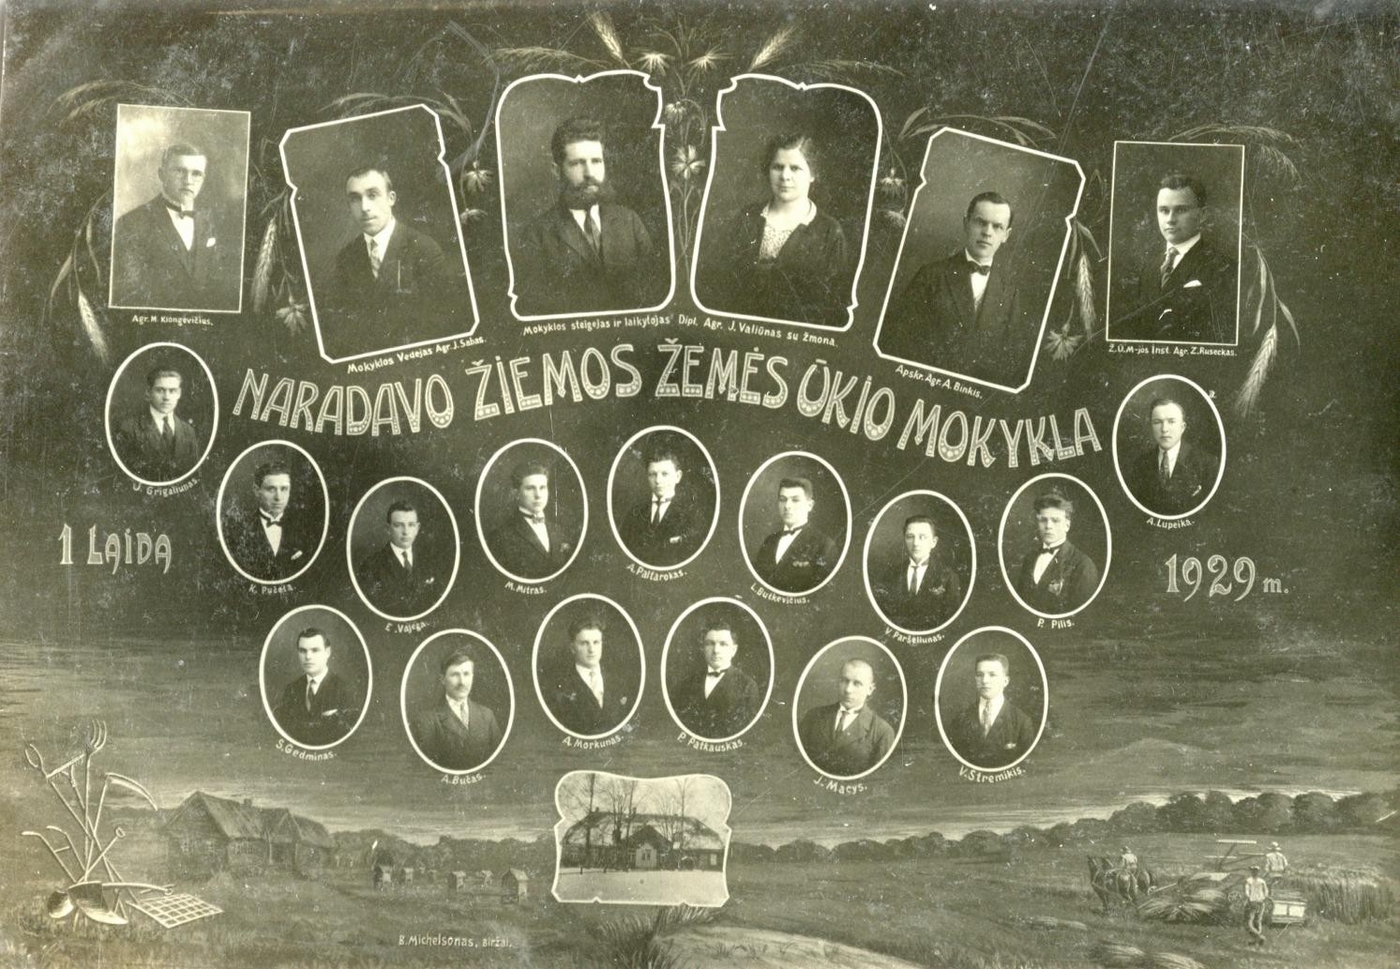 Agr. M. Klongevičius.
Mokyklos Vedėjas Agr. J. Sabas.
Mokyklos steigėjas ir laikytojas Dipl. Agr. J. Valiūnas su žmona.
Apskr. Agr. A. Binkis.
Ž.Ū.M-jos Inst. Agr. Z. Ruseckas.
NARADAVO ŽIEMOS ŽEMĖS ŪKIO MOKYKLA
J. Grigaliunas.
A. Lupeika.
1 LAIDA
1929 m.
K. Puzela.
E. Vajega.
M. Mitras.
A. Paltarokas.
L. Butkevičius.
V. Paršeliunas.
P. Pilis.
S. Gedminas.
A. Bučas.
A. Morkunas.
P. Patkauskas.
J. Macys.
V. Stremikis.
B. Michelsonas, Biržai.